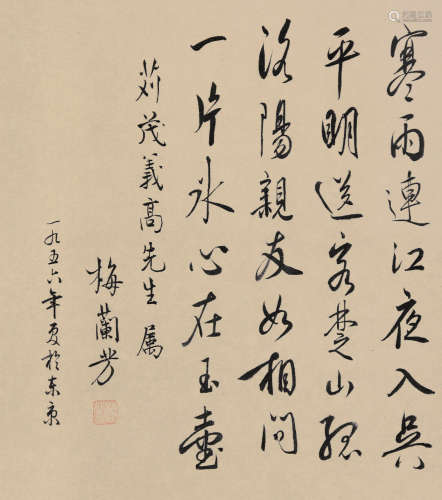 寒雨連江夜入吳
平明送客楚山孤
洛陽親友如相問
一片冰心在玉壺
苅茂義高先生 属
梅蘭芳
一九五六年夏於东京